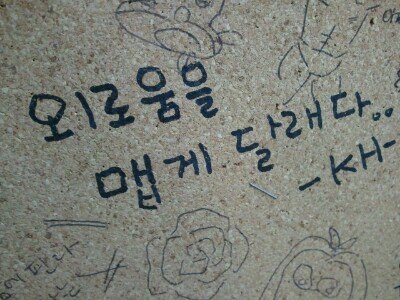 외로움을
맵게 달래다..
-KH-